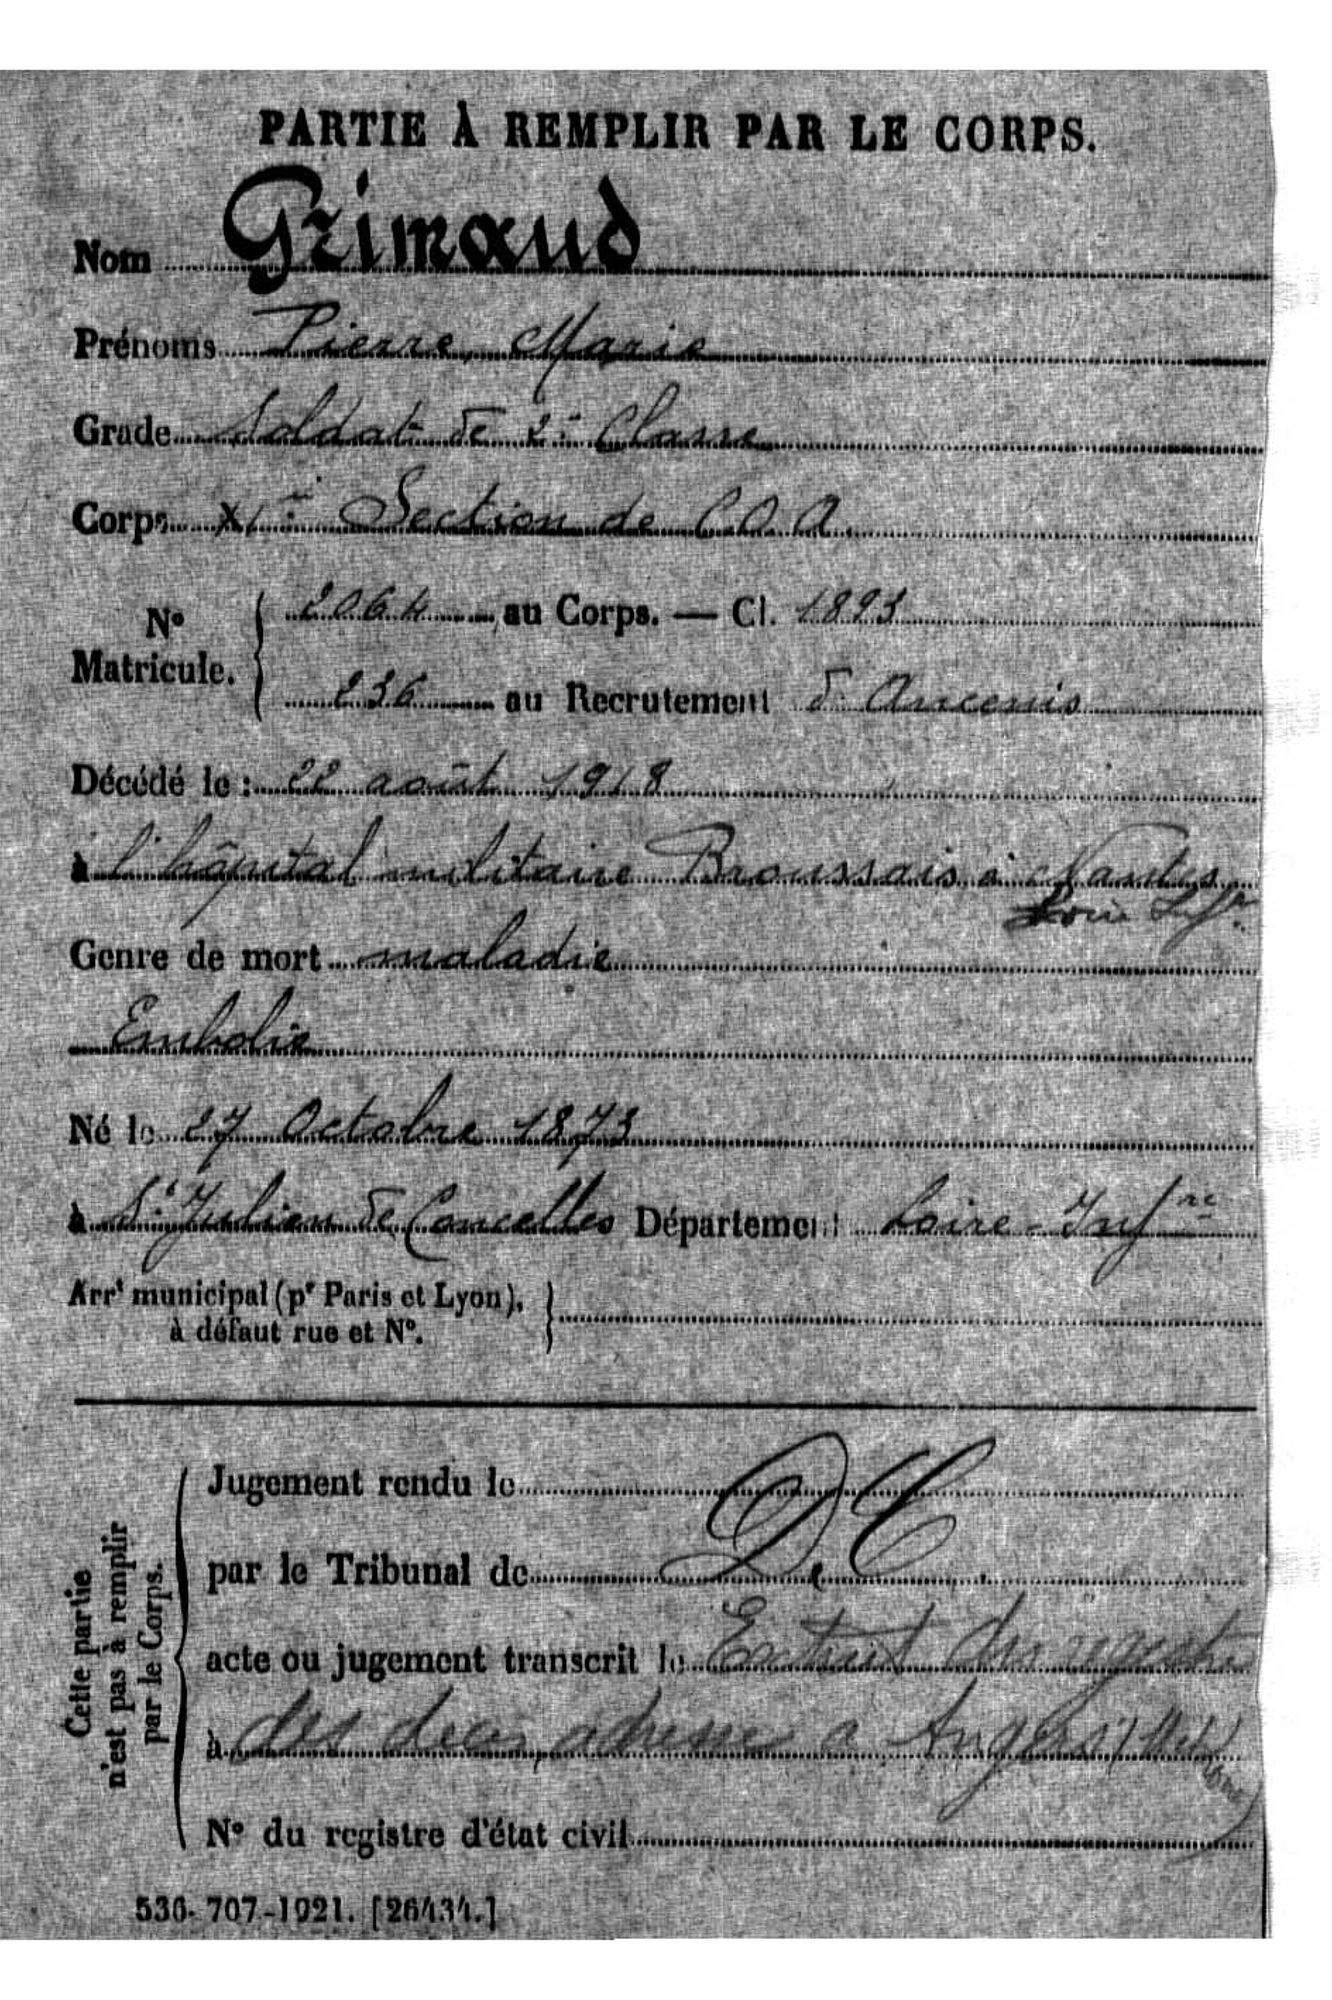 PARTIE À REMPLIR PAR LE CORPS.
Nom Grimaud
Prénoms Pierre, Marie
Grade Soldat de 2e Classe
Corps XIe Section de C.O.A.
No Matricule. 2064 au Corps. — Cl. 1893
236 au Recrutement d'Ancenis
Décédé le : 22 août 1918
à l'hôpital militaire Broussais à Nantes
Loire Infre
Genre de mort maladie
Embolie
Né le 27 Octobre 1873
à St Julien de Concelles Département Loire-Infre
Arrt municipal (pr Paris et Lyon), à défaut rue et No.
Cette partie n'est pas à remplir par le Corps.
Jugement rendu le
par le Tribunal de DC
acte ou jugement transcrit le Extrait du registre
à des décès adressé à Angers
No du registre d'état civil
536-707-1921. [26434.]